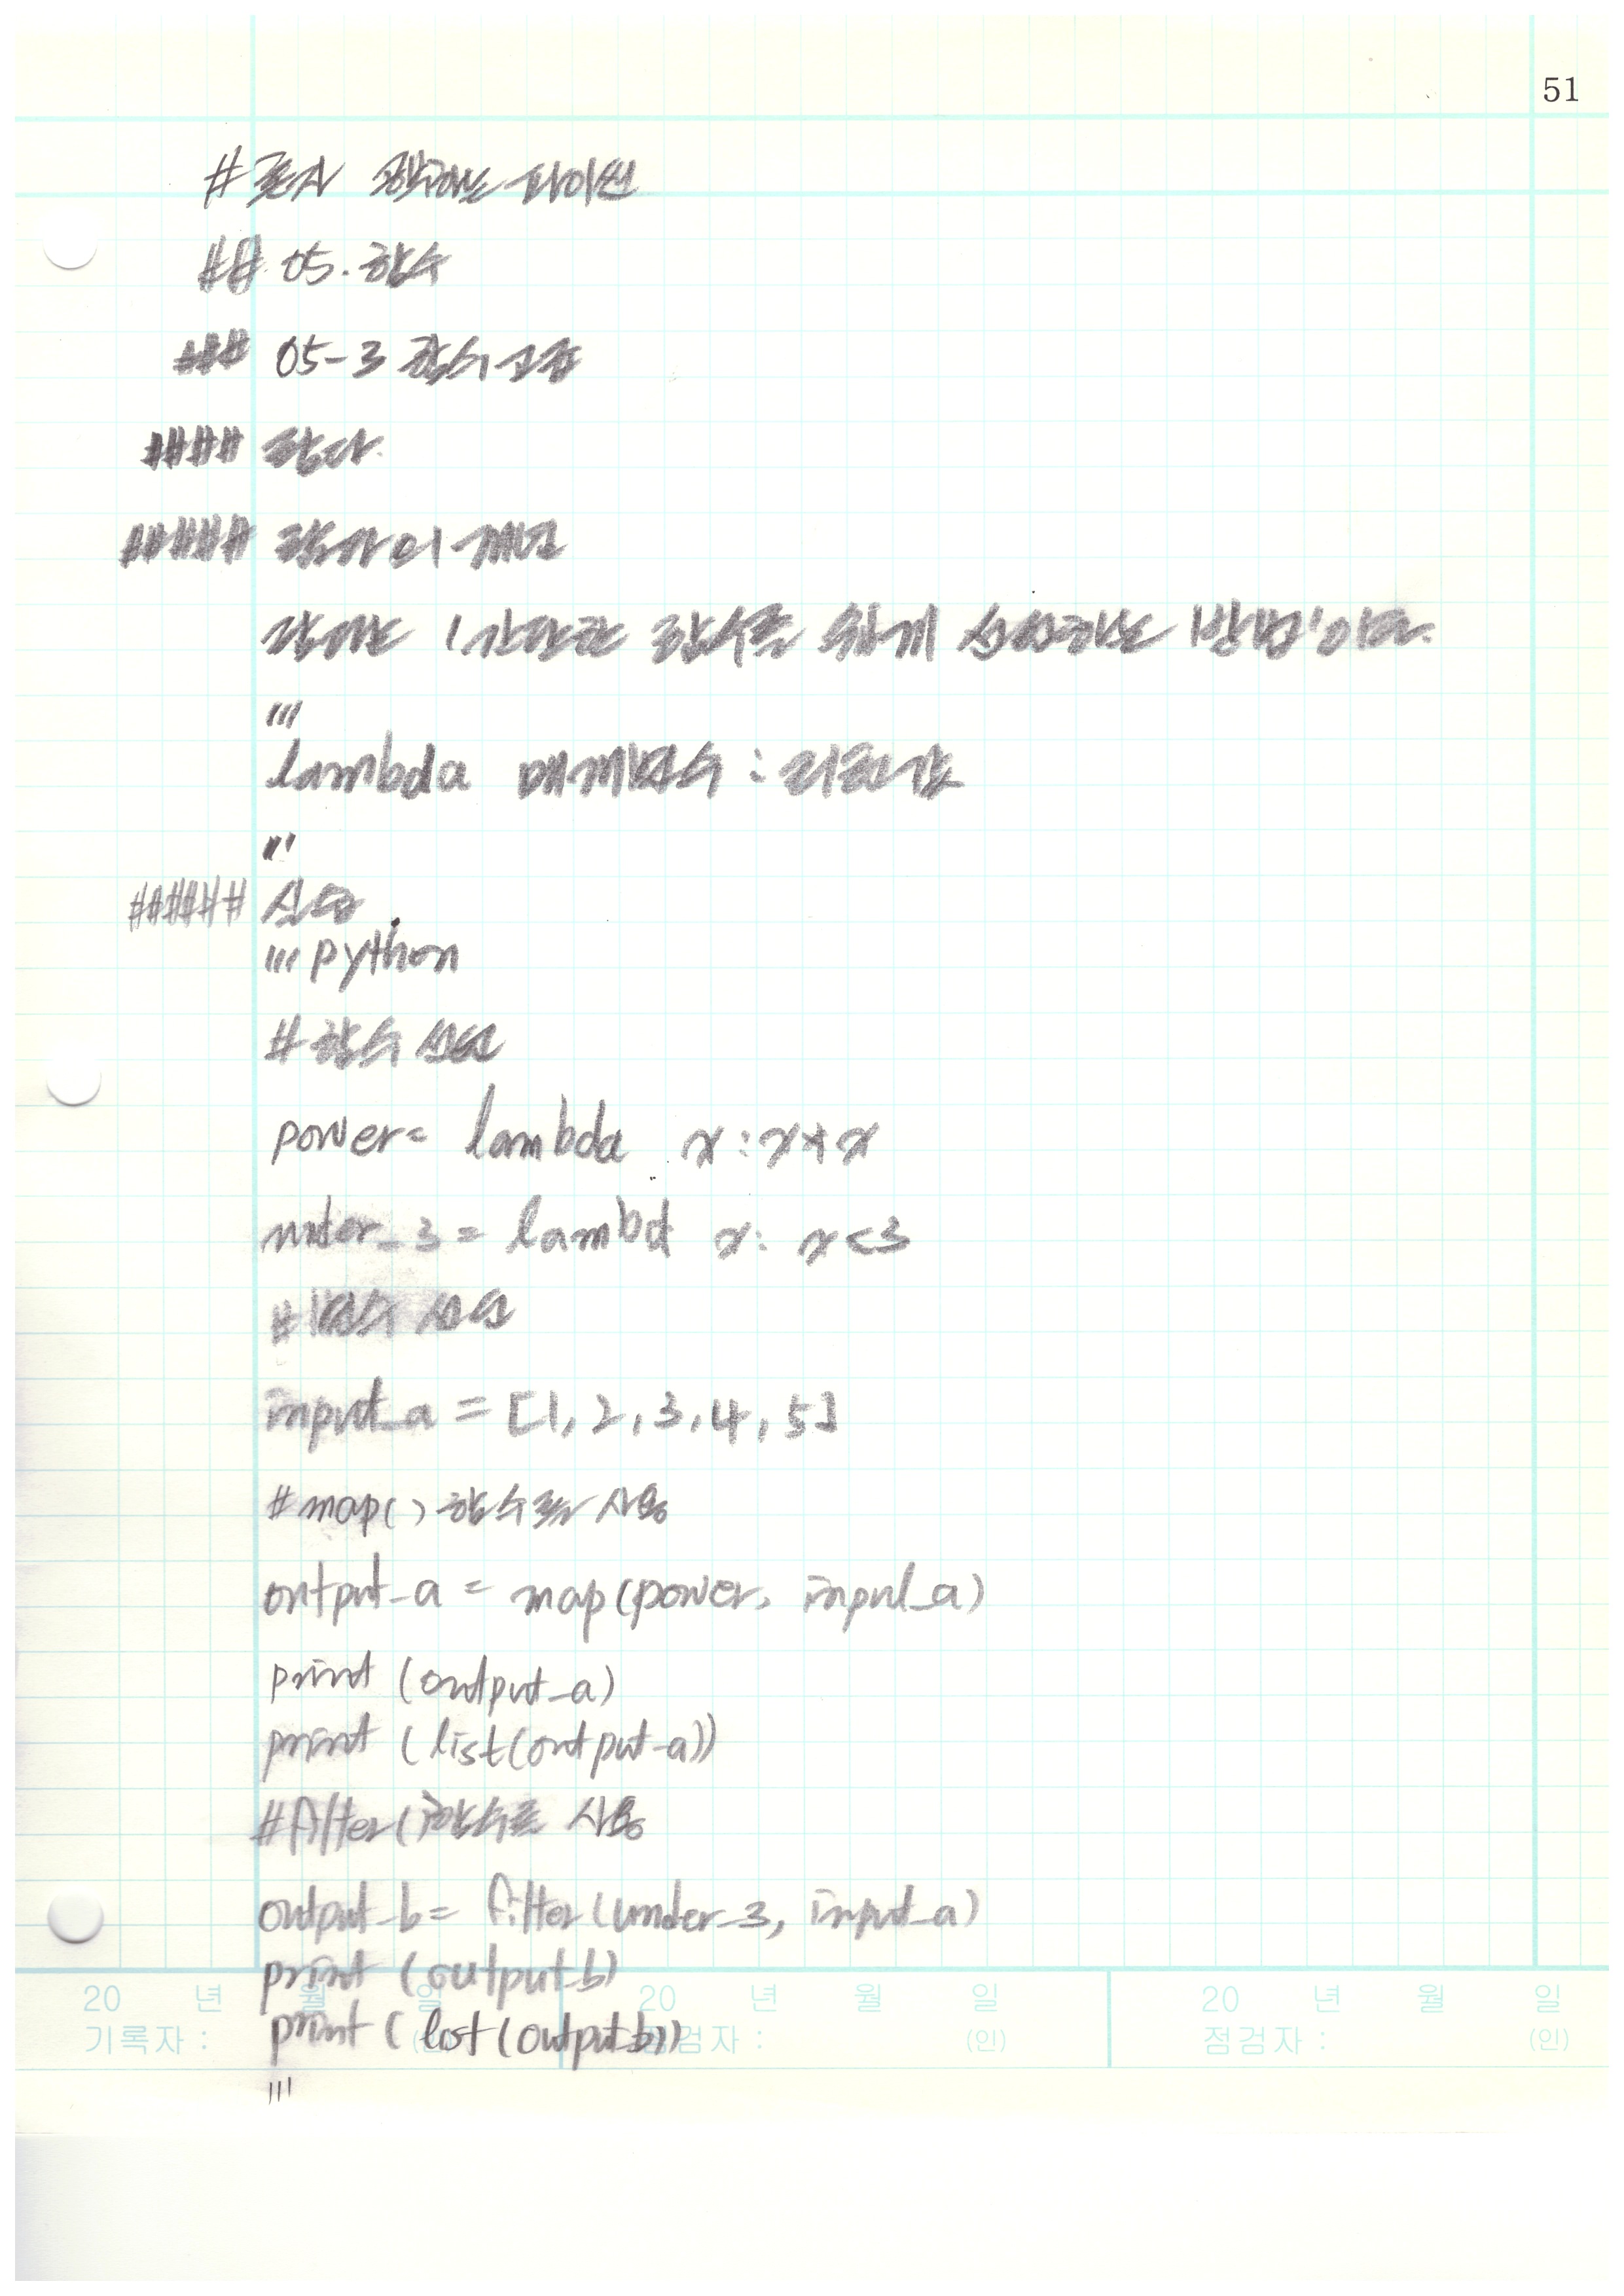 51
# 혼자 공부하는 파이썬
## 05. 함수
### 05-3 함수 고급
#### 람다
##### 람다의 개념
람다는 '간단한 함수를 쉽게 선언하는 방법'이다.
'''
lambda 매개변수 : 리턴값
'''
###### 실습
''' python
# 함수 선언
power = lambda x : x * x
under_3 = lambd x : x < 3
# 변수 선언
input_a = [1, 2, 3, 4, 5]
# map() 함수를 사용
output_a = map(power, input_a)
print (output_a)
print (list(output_a))
# filter() 함수를 사용
output_b = filter(under_3, input_a)
print (output_b)
print ( list (output_b))
20 년 월 일 20 년 월 일 20 년 월 일
기록자 : (인) 점검자 : (인) 점검자 : (인)
'''